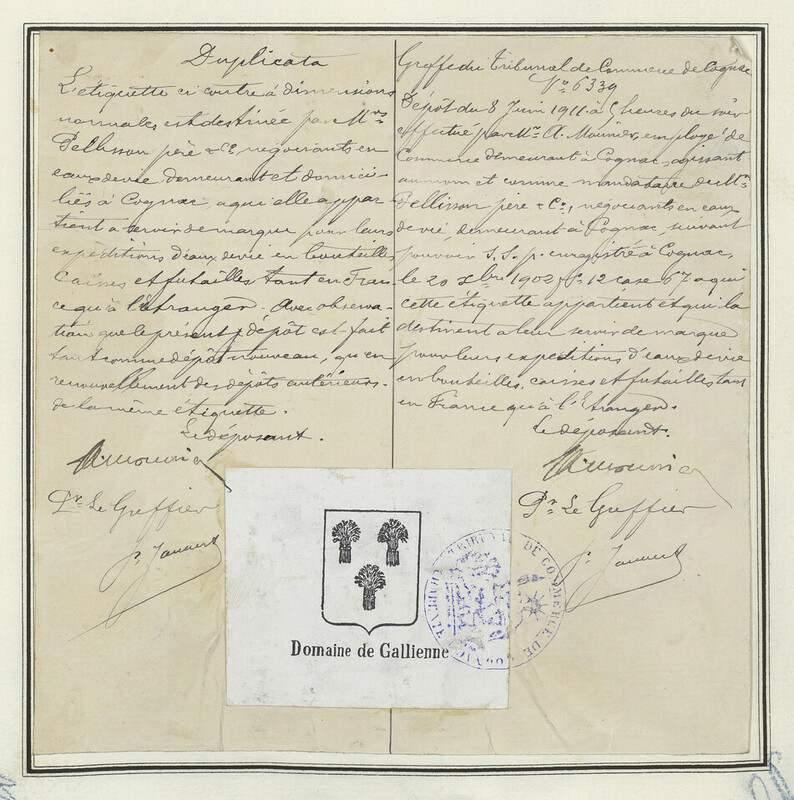 Duplicata
L'étiquette ci contre à dimensions
normales est destinée par Mrs
Pellisson père & Cie, négociants en
eaux devie demeurant et domici-
liés à Cognac à qui elle appar-
tient a servir de marque pour leurs
expéditions d'eaux devie en bouteilles
Caisses et futailles tant en Fran-
ce qu'à l'étranger. Avec observa-
tion que le présent dépôt est fait
tant comme dépôt nouveau, qu'en
renouvellement des dépôts antérieurs
de la même étiquette.
Le déposant.
A. Mounier
Pr. Le Greffier
Greffe du Tribunal de Commerce de Cognac
No 6339
Dépôt du 8 Juin 1911 à 5 heures du soir
effectué par Mr A. Mounier, employé de
Commerce demeurant à Cognac, agissant
au nom et comme mandataire de Mrs
Pellisson père & Cie, négociants en eaux
devie, demeurant à Cognac, suivant
pouvoir S.S.p. enregistré à Cognac,
le 20 Xbre 1902, fo 12 case 67 à qui
cette étiquette appartient et qui la
destinent a leur servir de marque
pour leurs expéditions d'eaux devie
en bouteilles, caisses et futailles tant
en France qu'à l'Etranger.
Le déposant.
A. Mounier
Pr. Le Greffier
Domaine de Gallienne
TRIBUNAL DE COMMERCE DE COGNAC